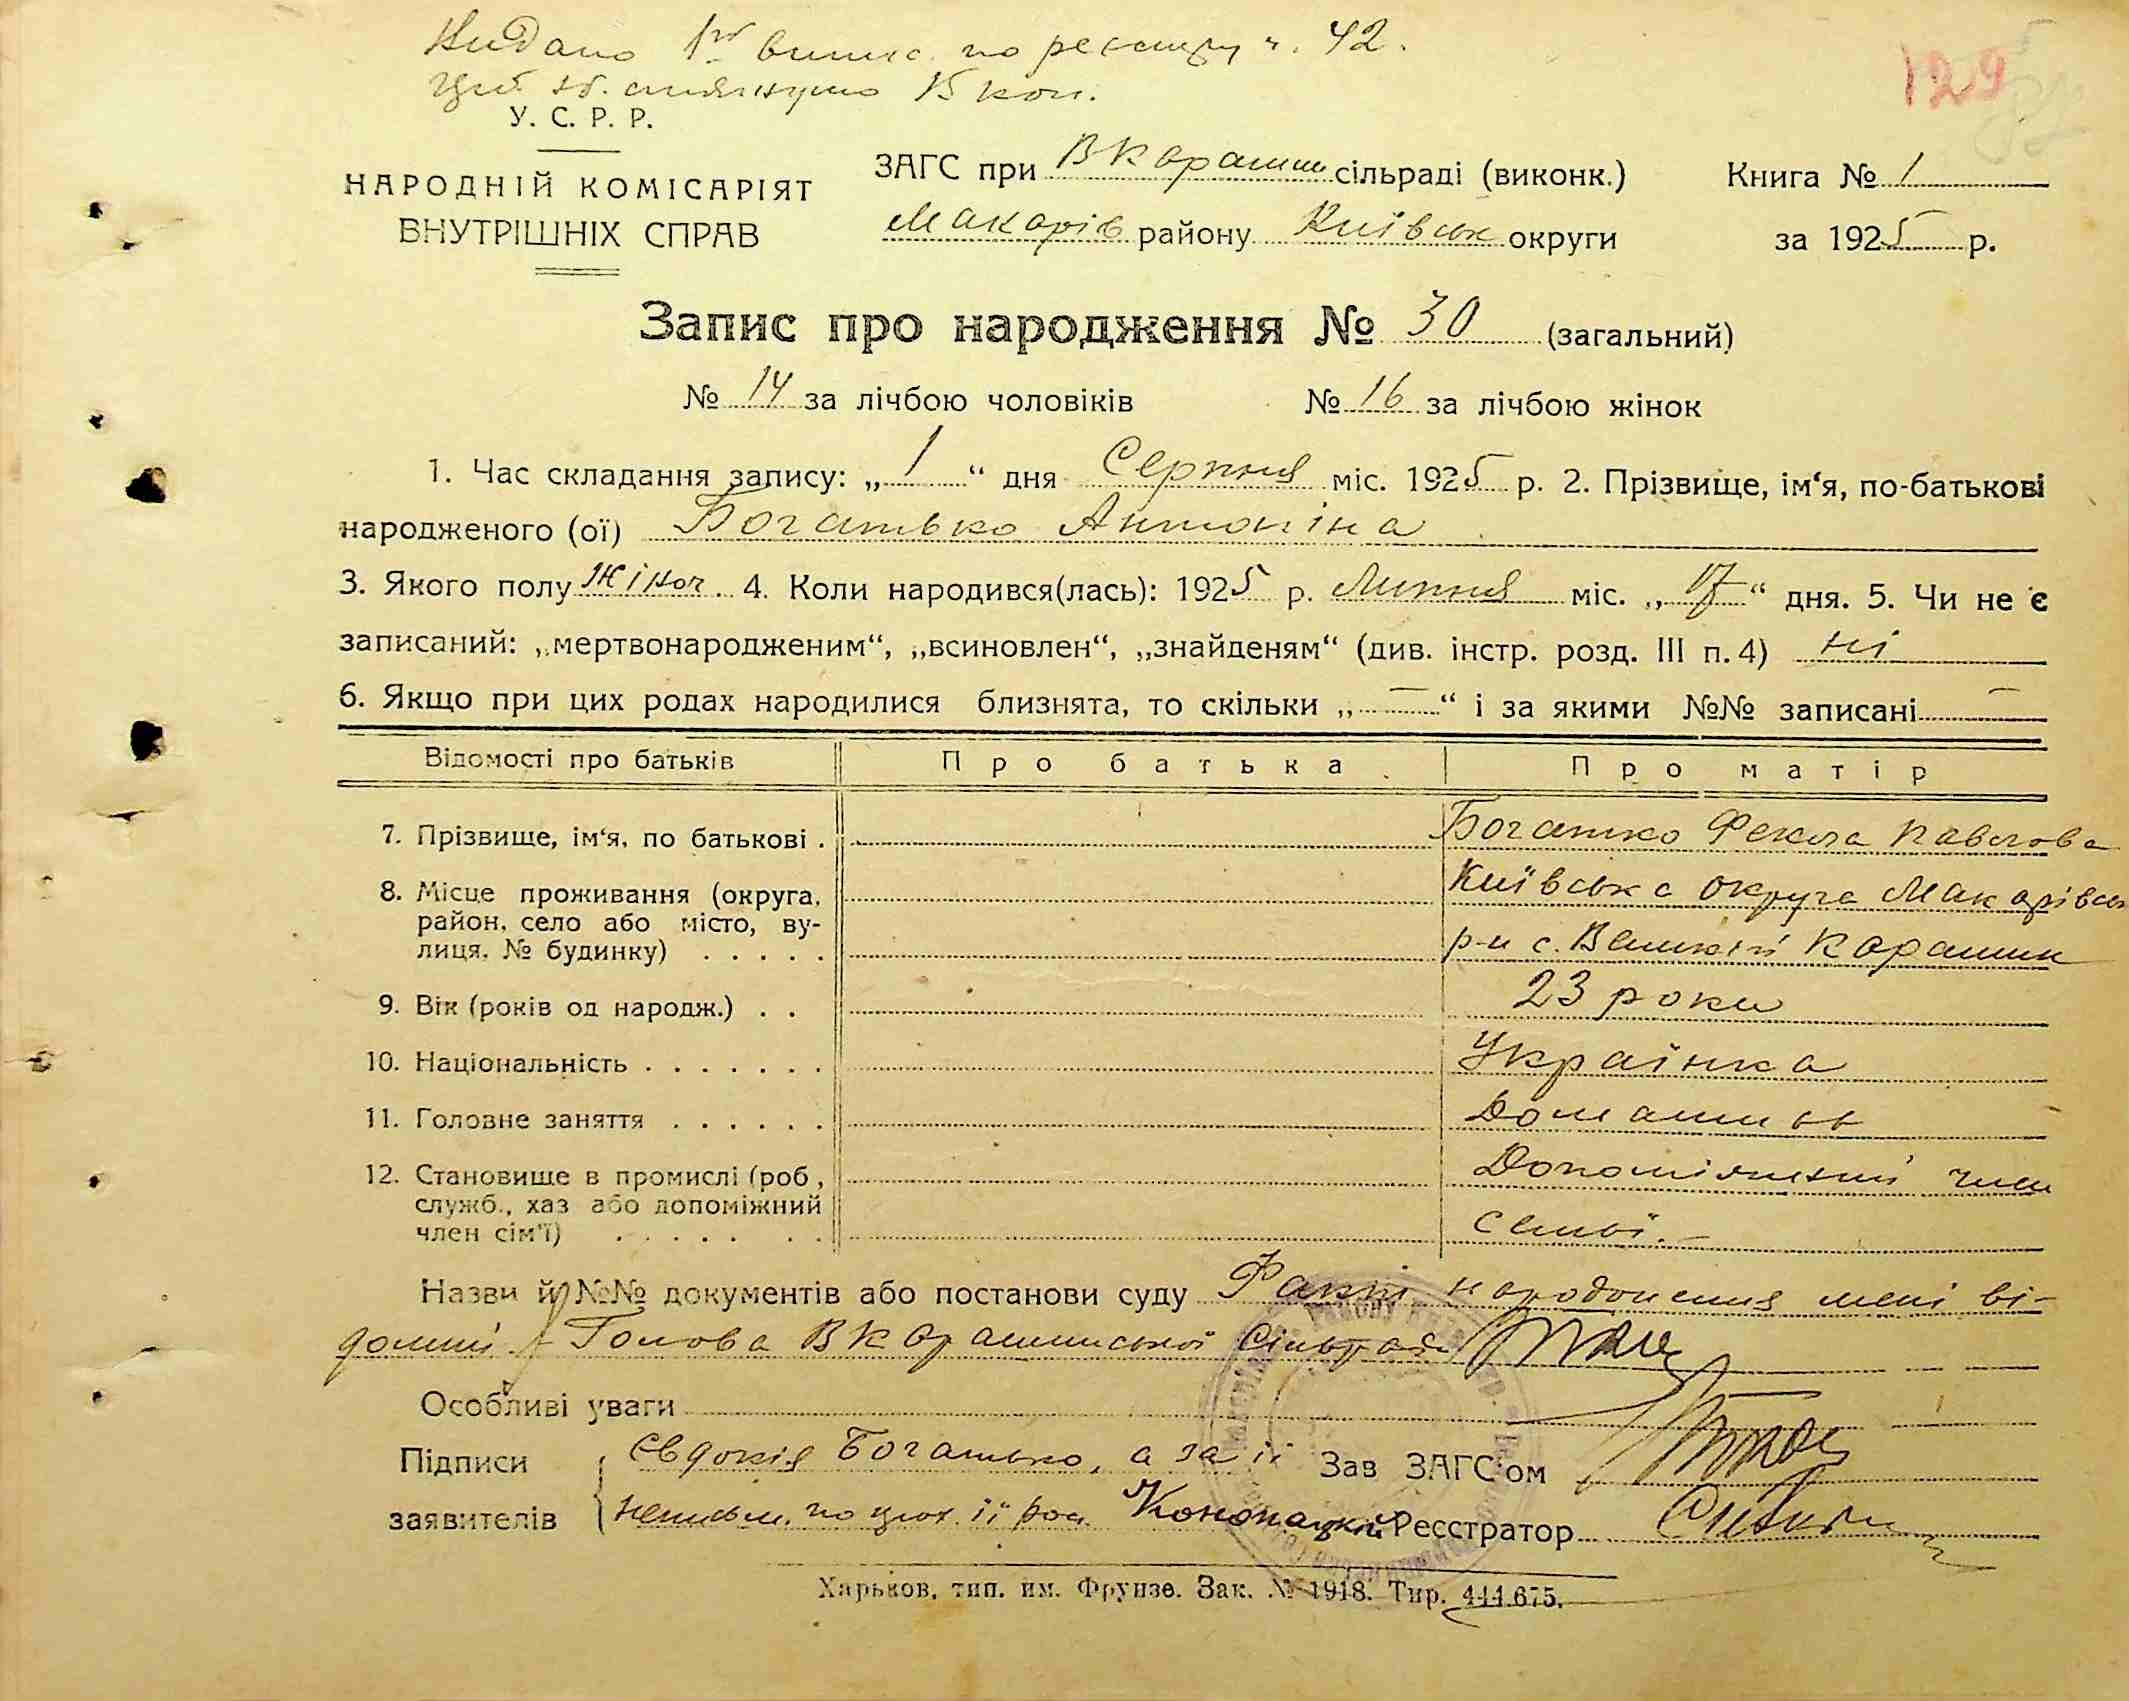 Видано 1ш випис. по реєстру ч. 42.
15 коп.
129
У. С. Р. Р.
НАРОДНІЙ КОМІСАРІЯТ
ВНУТРІШНІХ СПРАВ
ЗАГС при ВКарашин сільраді (виконк.)
Макарів району Київськ округи
Книга № 1
за 1925 р.
Запис про народження № 30 (загальний)
№ 14 за лічбою чоловіків № 16 за лічбою жінок
1. Час складання запису: „ 1 “ дня Серпня міс. 1925 р. 2. Прізвище, ім‘я, по-батькові
народженого (ої) Богатько Антоніна
3. Якого полу Жіноч. 4. Коли народився(лась): 1925 р. Липня міс. „ 17 “ дня. 5. Чи не є
записаний: „мертвонародженим“, „всиновлен“, „знайденям“ (див. інстр. розд. III п. 4) ні
6. Якщо при цих родах народилися близнята, то скільки „ — “ і за якими №№ записані —
Відомості про батьків Про батька Про матір
7. Прізвище, ім‘я, по батькові . Богатько Фекла Павлова
8. Місце проживання (округа, Київська округа Макарівськ
район, село або місто, ву-
лиця, № будинку) . . . . . р-н с. Великий Карашин
9. Вік (років од народж.) . . 23 роки
10. Національність . . . . . . . Українка
11. Головне заняття . . . . . .
12. Становище в промислі (роб., Допоміжний член
служб., хаз або допоміжний
член сім‘ї) . . . . . . . семьї.—
Назви й №№ документів або постанови суду Факт народження мені ві-
домий Голова ВКарашинської Сільради
Особливі уваги
Підписи
заявителів
Євдокія Богатько, а за її
неписьм. по її Конопацкий
Зав ЗАГС‘ом
Реєстратор
Харьков, тип. им. Фрунзе. Зак. № 1918. Тир. 444.675.